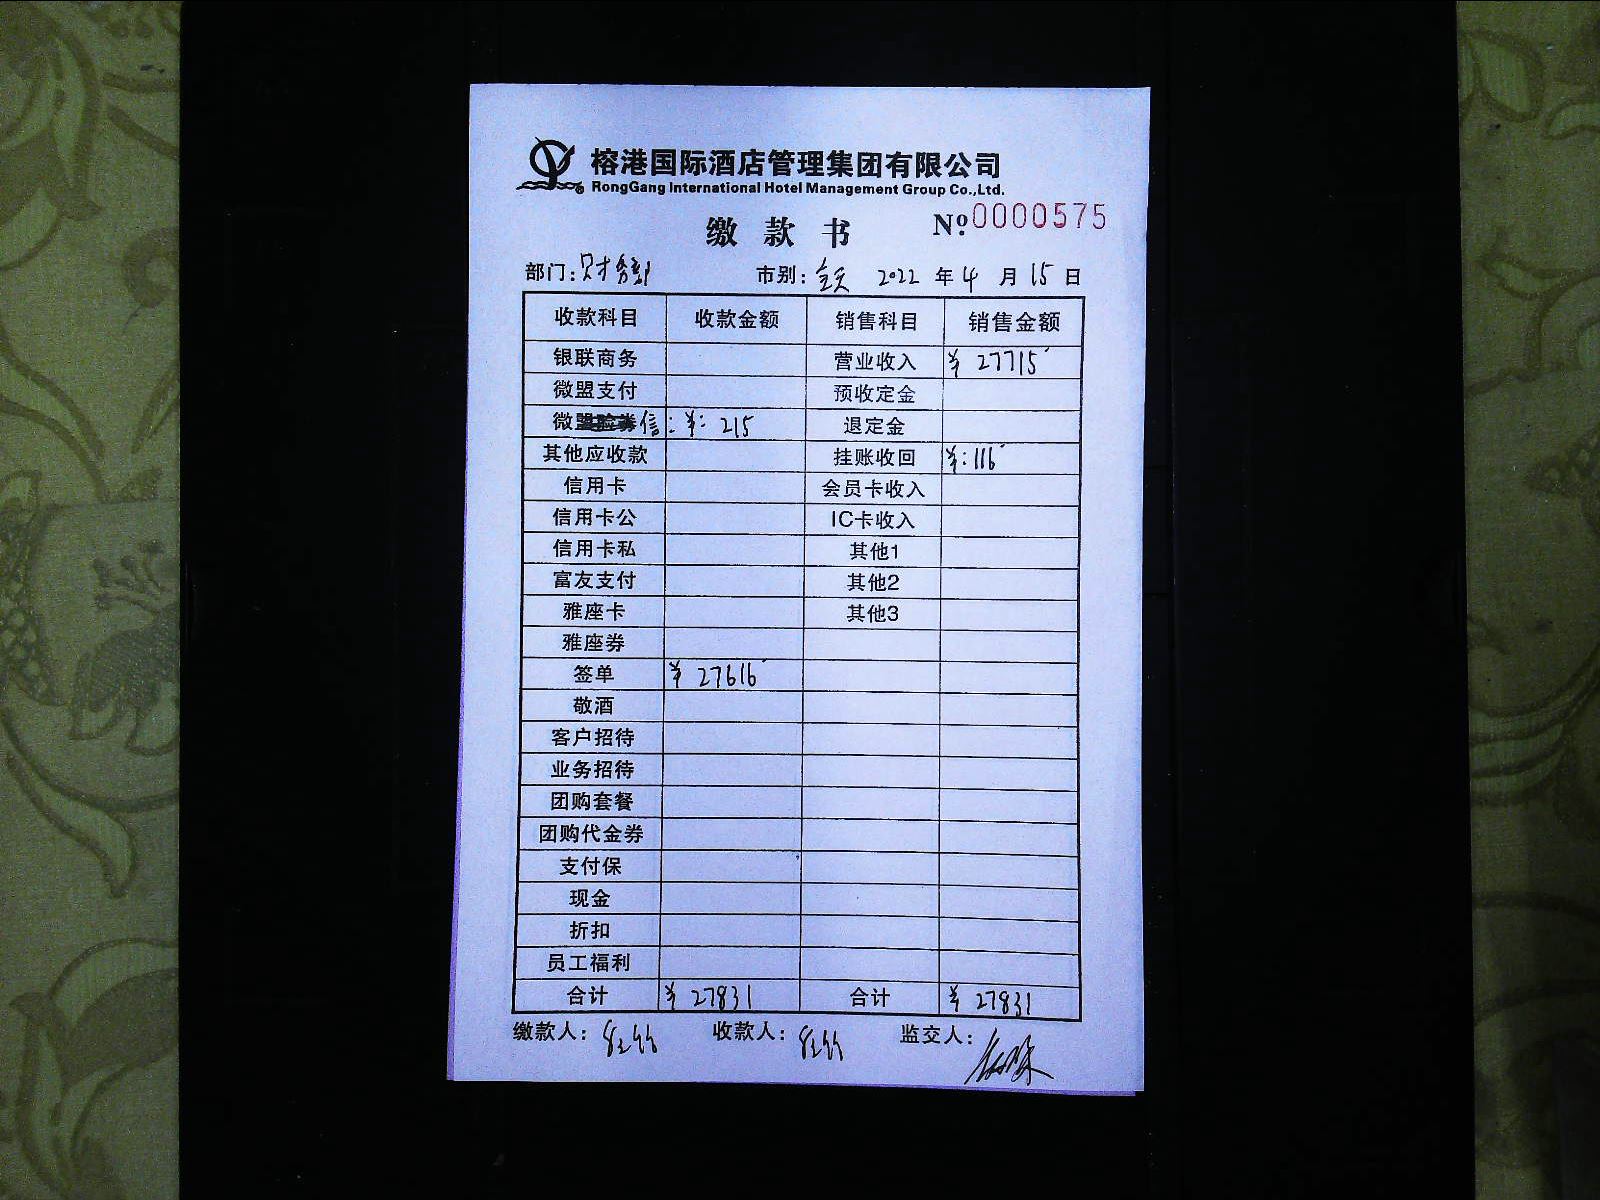 榕港国际酒店管理集团有限公司
RongGang International Hotel Management Group Co.,Ltd.
缴款书 Nº.0000575
部门:财务部 市别:全天 2022年4月15日
收款科目 收款金额 销售科目 销售金额
银联商务 营业收入 ¥ 27715
微盟支付 预收定金
微信:¥:215 退定金
其他应收款 挂账收回 ¥:116
信用卡 会员卡收入
信用卡公 IC卡收入
信用卡私 其他1
富友支付 其他2
雅座卡 其他3
雅座券
签单 ¥ 27616
敬酒
客户招待
业务招待
团购套餐
团购代金券
支付保
现金
折扣
员工福利
合计 ¥ 27831 合计 ¥ 27831
缴款人: 收款人: 监交人: